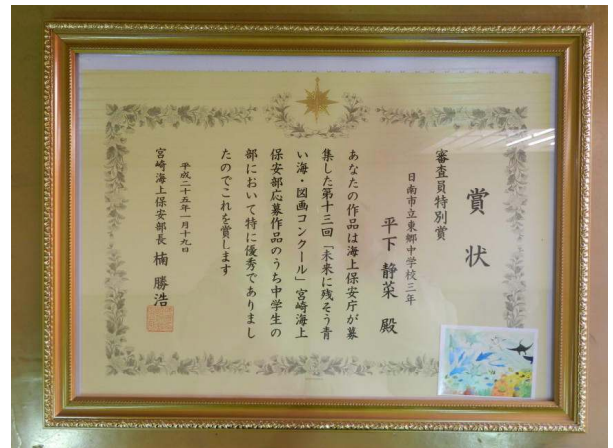 賞状
審査員特別賞
日南市立東郷中学校三年
平下静菜殿
あなたの作品は海上保安庁が募
集した第十三回「未来に残そう青
い海・図画コンクール」宮崎海上
保安部応募作品のうち中学生の
部において特に優秀でありまし
たのでこれを賞します
平成二十五年一月十九日
宮崎海上保安部長 楠勝浩